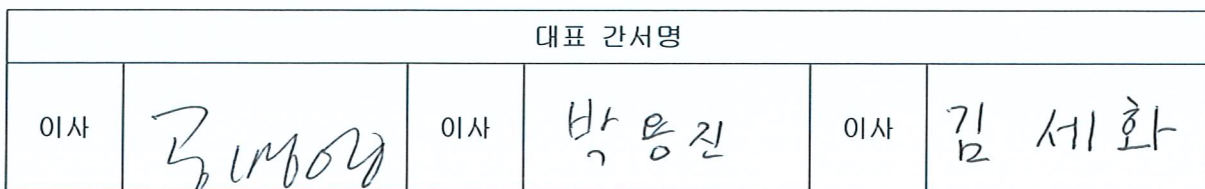 대표 간서명
이사 이사 박용진 이사 김 세화